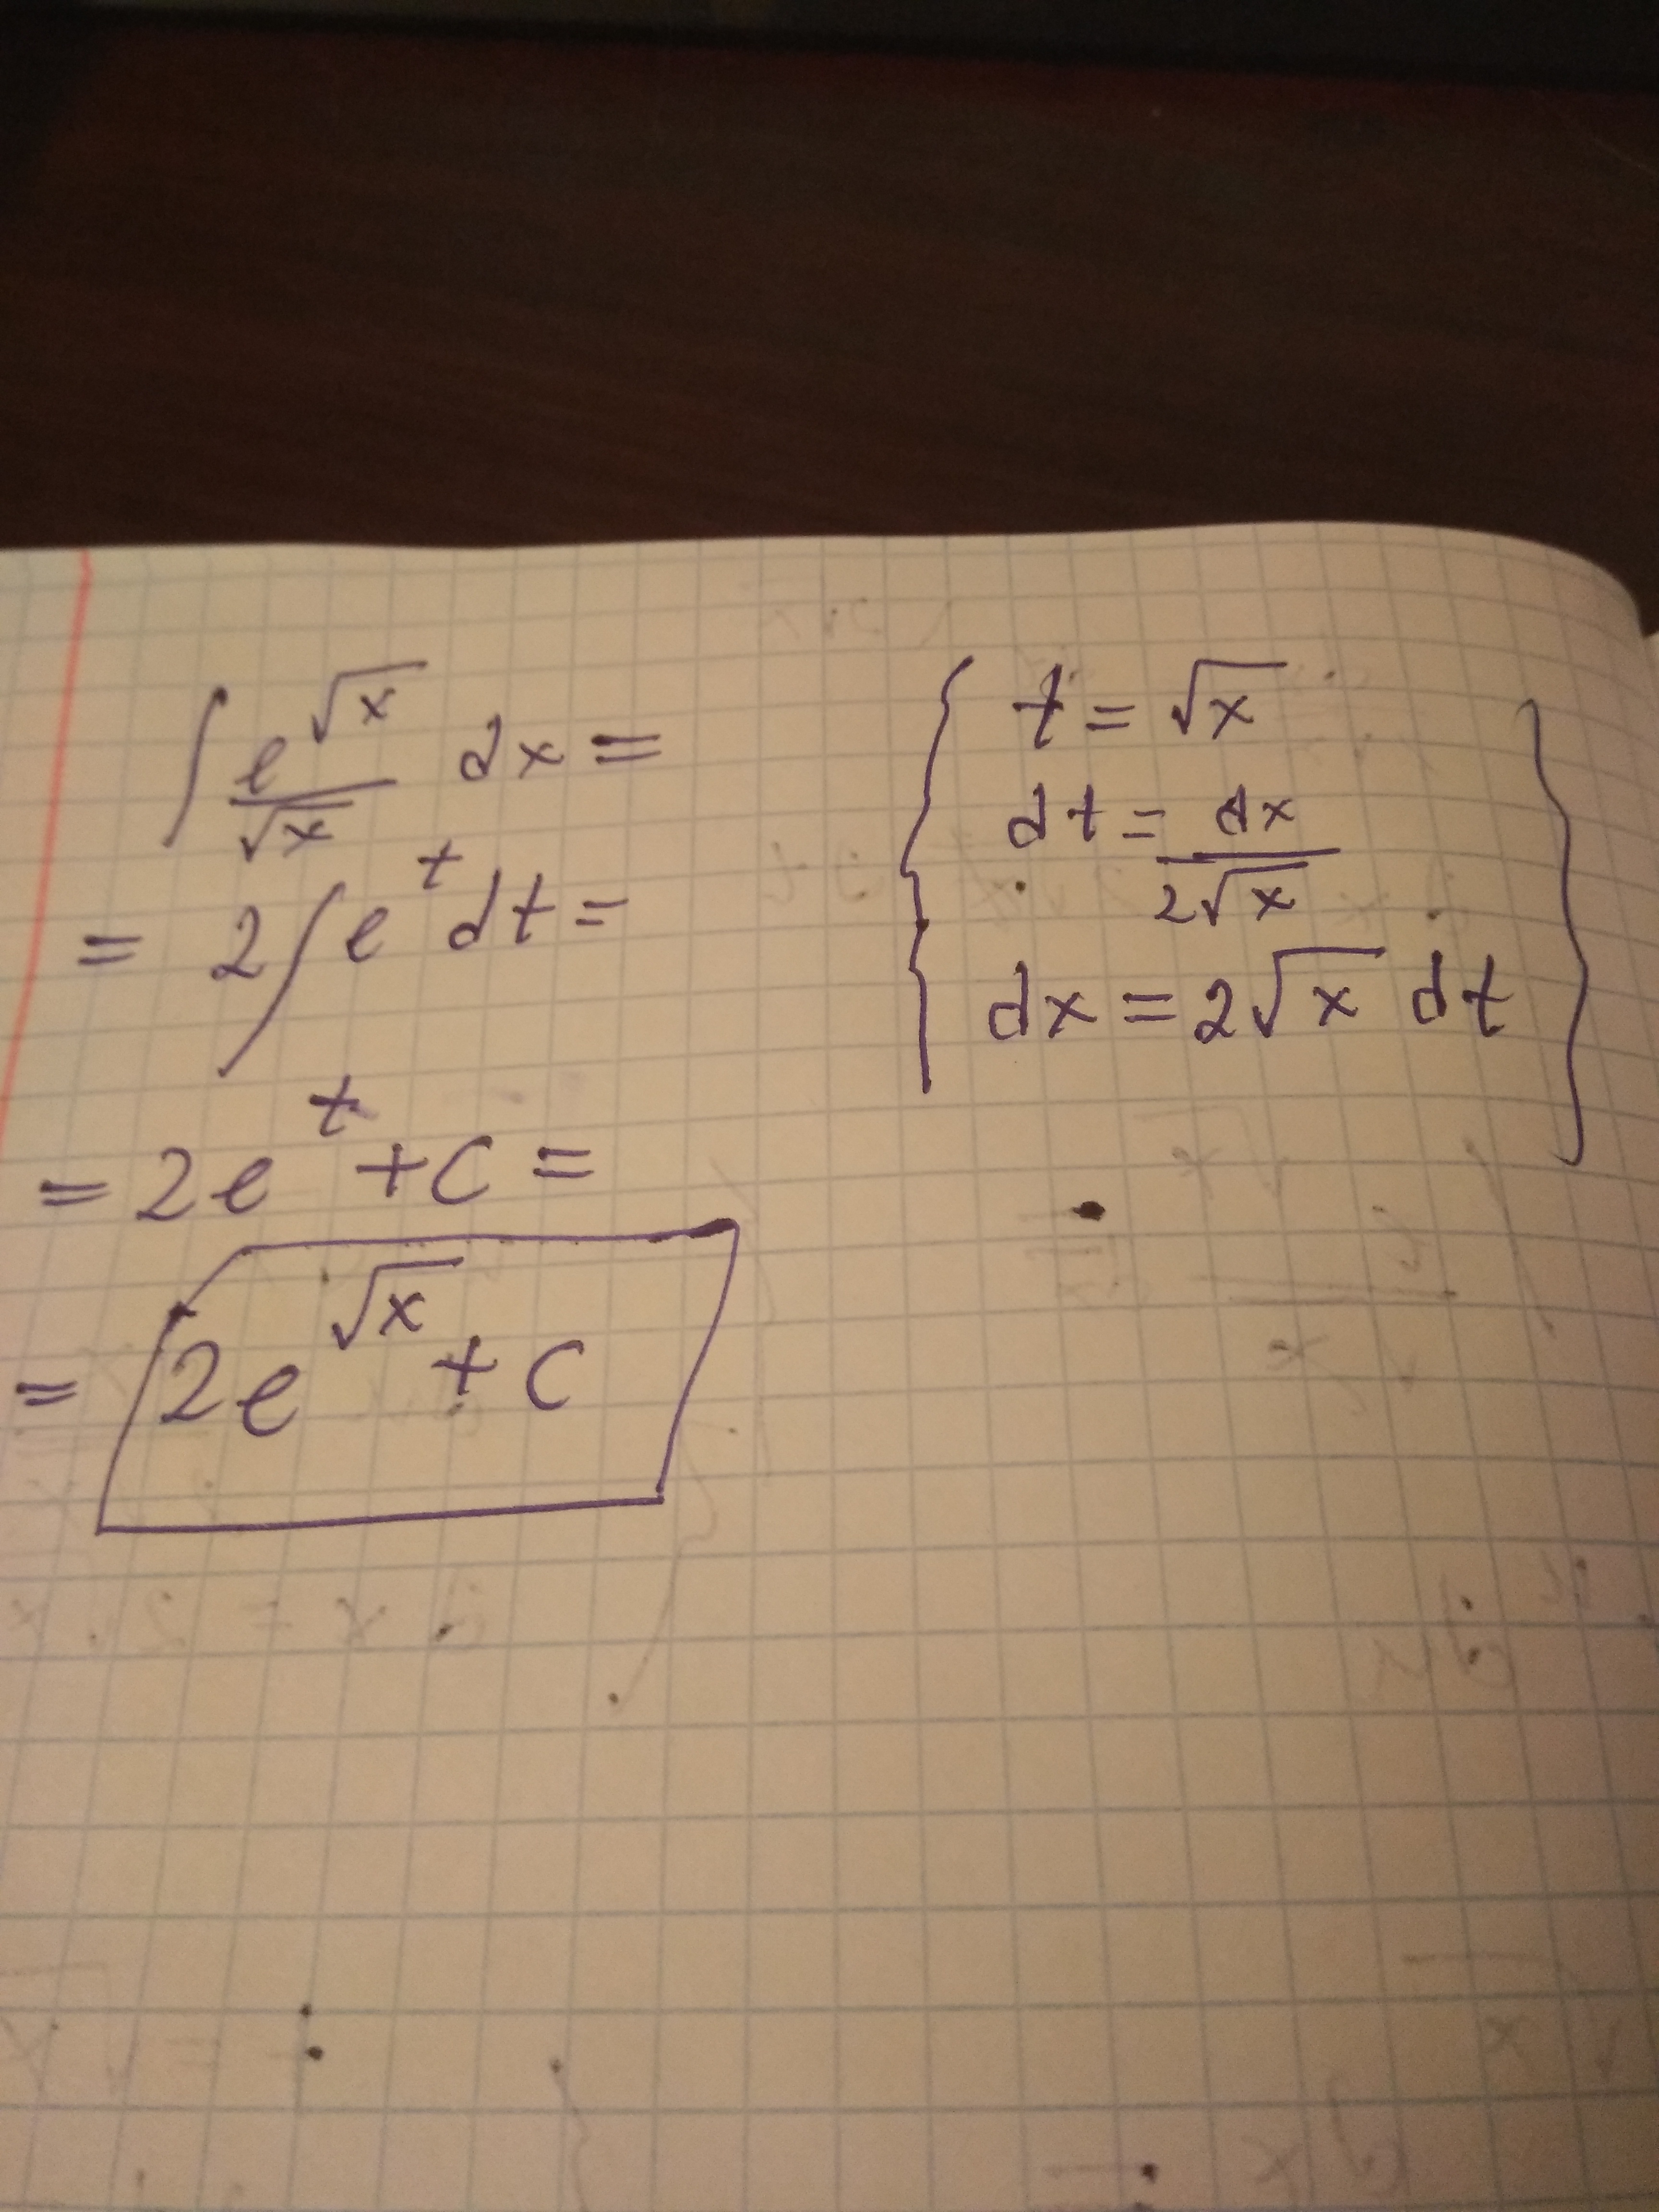 ∫ e^√x / √x dx =
= 2∫e^t dt =
= 2e^t + C =
= 2e^√x + C
t = √x
dt = dx / 2√x
dx = 2√x dt